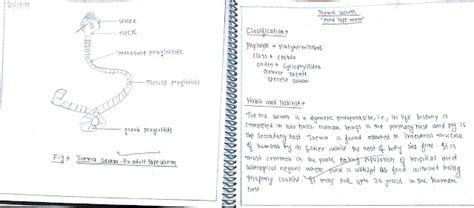 scolex
neck
immature proglottids
mature proglottids
gravid proglottids
Fig → Taenia solium - An adult tapeworm
Taenia solium
"Pork tape worm"
Classification:
phylum → platyhelminthes
class → cestoda
order → cyclophyllidea
Genus → Taenia
species → solium
Habit and Habitat:
Taenia solium is a digenetic endoparasite, i.e., its life history is
completed in two hosts. Human beings is the primary host and pig is
the secondary host. Taenia is found attached to internal mucosa
of humans by its scolex while the rest of body lies free. It is
most common in the pork eating population of tropical and
subtropical regions where pork is utilized as food without being
properly cooked. It may live upto 25 years in the human
host.